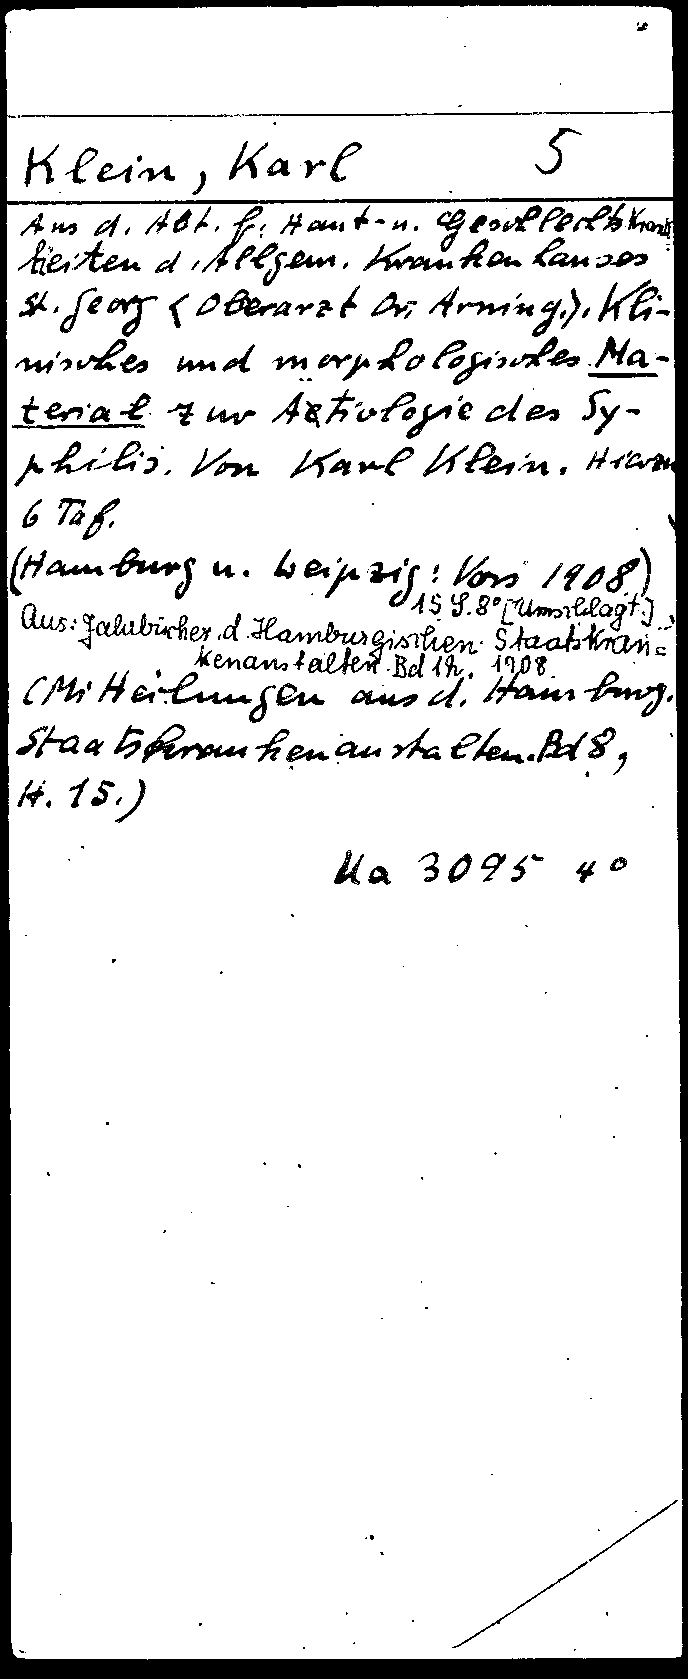 Klein, Karl 5
Aus d. Abt. f. Haut- u. Geschlechtskrank
heiten d. Allgem. Krankenhauses
St. Georg (Oberarzt Dr. Arning.). Kli-
nisches und morphologisches Ma-
terial zur Aetiologie des Sy-
philis. Von Karl Klein. Hierzu
6 Taf.
(Hamburg u. Leipzig: Voss 1908)
15 S. 8° [Umschlagt.]
Aus: Jahrbücher d. Hamburgischen Staatskran=
kenanstalten. Bd 12. 1908.
(Mitteilungen aus d. Hamburg.
Staatskrankenanstalten. Bd 8,
H. 15.)
Ua 3095 4°